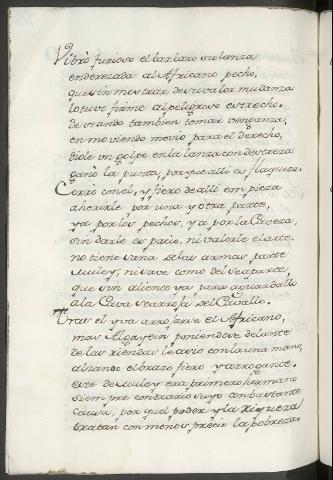 Vibrò furioso el tartaro su lanza
enderezada al Africano pecho,
que sin mostrar de su valor mudanza
lo tuvo firme al peligroso estrecho.
Deseando tambien tomar venganza,
en moviendo movio para el derecho,
diole un golpe en la lanza con destreza
ganò la punta, porque alli es flaqueza.
Cerrò con el, y fiero de alli empieza
a herirle por una y otra parte,
ya por los pechos, ya por la Caveza,
sin darle espacio, ni valerle el arte.
no tiene sana de las armas parte
Muley, ni save como del se aparte,
que sin aliento ya para aguardallo
a la Cava se arroja del Cavallo.
Tras el yva arrojarse el Africano,
mas Algaydin poniendose delante
de las riendas le asio con la una mano,
alzando el brazo fiero y arrogante.
este de Muley era primo hermano
siempre contrario suyo con bastante
causa, por que el poder y la riqueza
tratan con menos precio la pobreza.